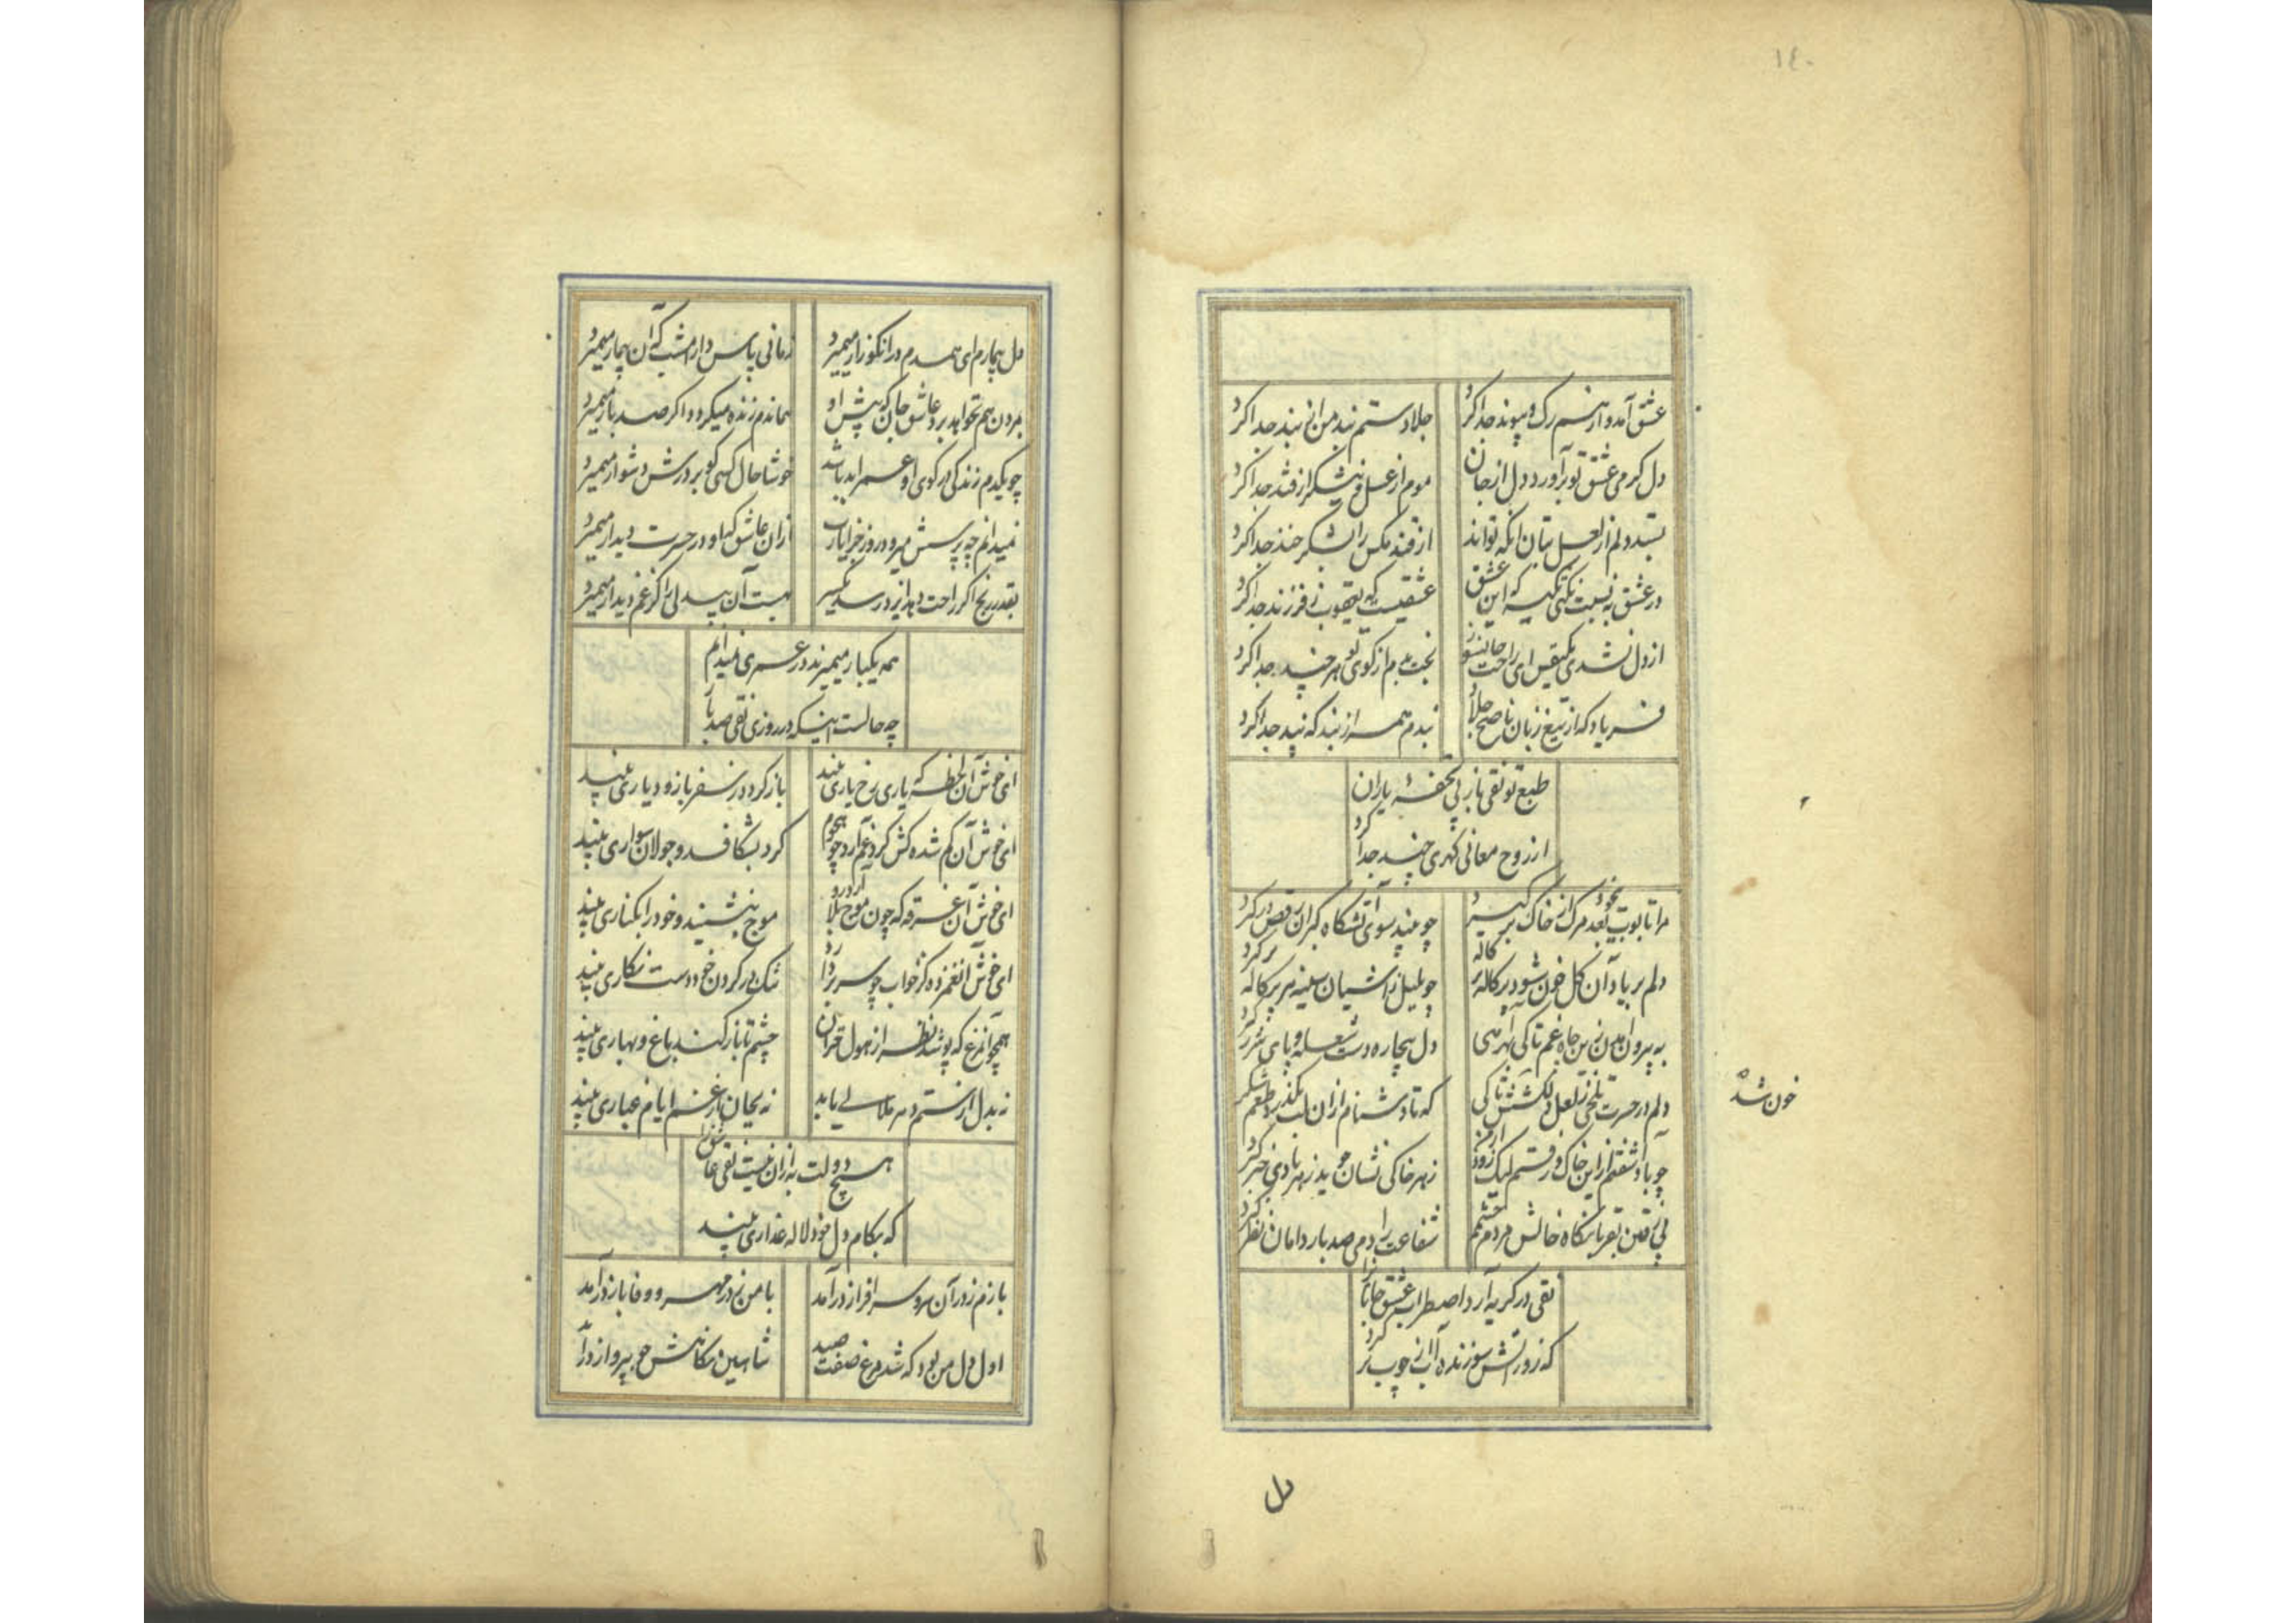 ١٤٠
عشق آمد و از هم رک و پیوند جدا کرد
جلاد ستم بند من از بند جدا کرد
دل کرمی عشق تو برآورد دل از جان
موم از عسل و نیشکر از قند جدا کرد
دلم از لعل بتان آنکه تواند
از قند مکس را بشکر خند جدا کرد
در عشق به نسبت نکنی تکیه که این عشق
عشقیست که یعقوب ز فرزند جدا کرد
از دل نشدی یکنفس ای راحت جانسوز
بخت بدم از کوی تو هر چند جدا کرد
فریاد که از تیغ زبان ناصح جلاد
بندم همه از بند که پند جدا کرد
طبع تو تقی باز پی تحفه یاران
از روح معانی کهری چند جدا کرد
مرا تابوت بعد مرک از خاک بر کیرد
چو بیند سوی آتشکاه کبران رقص در کیرد
دلم بر یاد آن کل خون شود پرکاله پرکاله
چو بلبل ز آشیان سینه
به پیرون
زین چاه غم تا کی
دل بیچاره دست شعله و پای شرر کیرد
دلم در حسرت تلخی ز لعل دلکشش تا کی
خون شد
که تا دشنام از ان لب بگذرد طعم شکر کیرد
چو باد آشفته ام از این خاک و رفتم لیک
ز هر خاکی نشان جوید ز هر بادی خبر کیرد
پی قتل
نکاه خالش مردم چشمم
شفاعت را دمی صد بار دامان نظر کیرد
تقی در کریه آرد اضطراب عشق جانان را
که زور آتش سوزنده آب از چوب تر کیرد
دل
دل بیمارم ای همدم در آن کو زار میمیرد
زمانی پاس دار امشب که آن بیمار میمیرد
بمردن هم نخواهد برد عاشق جان که پیش او
هماندم زنده میکردد اکر صد بار میمیرد
چو یکدم زندکی در کوی او عمر ابد باشد
خوشا حال کسی کو بر درش دشوار میمیرد
نمیدانم چه پرسش میرود روز جزا یا رب
از ان عاشق که او در حسرت دیدار میمیرد
بقدر رنج اکر راحت دهد ایزد
آن بیدلی را کز غم دیدار میمیرد
همه یکبار میمیرند در عمری نمیدانم
چه حالست اینکه در روزی تقی صد بار
ای خوش آن لحظه که یاری رخ یاری بیند
باز کردد ز سفر باز و دیاری بیند
ای خوش آن کم شده کش کرد غم آرد چو هجوم
کرد بشکافد و جولان سواری بیند
ای خوش آن غرقه که چون موج بلا آرد رو
موج بنشیند و خود را بکناری بیند
ای خوش آن غمزده کز خواب چو سر بردارد
تنک در کردن خود دست نکاری بیند
همچو آن مرغ که پوشد نظر از هول خزان
چشم تا باز کند باغ و بهاری بیند
نه بدل از ستم دهر ملالی یابد
نه بجان از غم ایام غباری بیند
هیچ دولت به از ان نیست تقی عاشق را
که بکام دل خود لاله عذاری بیند
بازم ز در آن سرو سرافراز درآمد
با من ز در مهر و وفا باز درآمد
اول دل من بود که شد مرغ صفت صید
شاهین نکاهش چو بپرواز درآمد